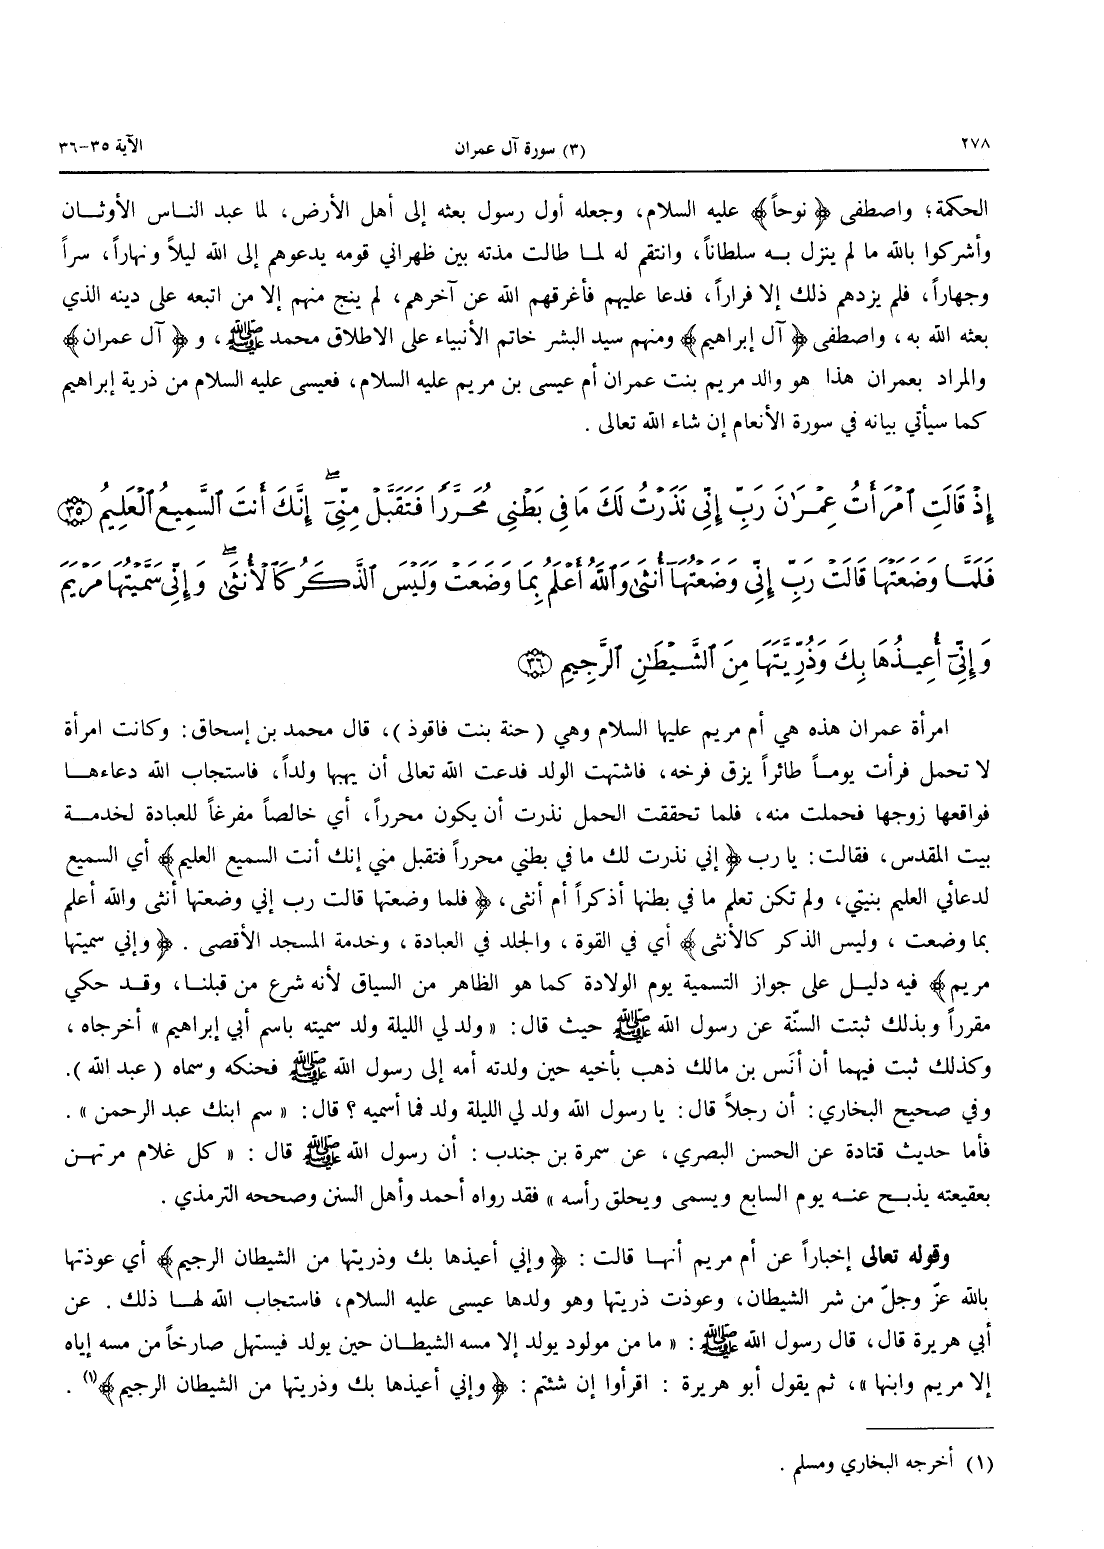 ٢٧٨ (٣) سورة آل عمران الآية ٣٥-٣٦
الحكمة؛ واصطفى ﴿ نوحاً﴾ عليه السلام، وجعله أول رسول بعثه إلى أهل الأرض، لما عبد الناس الأوثان
وأشركوا بالله ما لم ينزل به سلطاناً، وانتقم له لما طالت مدته بين ظهراني قومه يدعوهم إلى الله ليلاً ونهاراً، سراً
وجهاراً، فلم يزدهم ذلك إلا فراراً، فدعا عليهم فأغرقهم الله عن آخرهم، لم ينج منهم إلا من اتبعه على دينه الذي
بعثه الله به، واصطفى ﴿ آل إبراهيم﴾ ومنهم سيد البشر خاتم الأنبياء على الاطلاق محمد ﷺ، و ﴿ آل عمران﴾
والمراد بعمران هذا هو والد مريم بنت عمران أم عيسى بن مريم عليه السلام، فعيسى عليه السلام من ذرية إبراهيم
كما سيأتي بيانه في سورة الأنعام إن شاء الله تعالى .
إِذْ قَالَتِ ٱمْرَأَتُ عِمْرَٰنَ رَبِّ إِنِّي نَذَرْتُ لَكَ مَا فِي بَطْنِي مُحَرَّرًا فَتَقَبَّلْ مِنِّيٓ ۖ إِنَّكَ أَنتَ ٱلسَّمِيعُ ٱلْعَلِيمُ ﴿٣٥﴾
فَلَمَّا وَضَعَتْهَا قَالَتْ رَبِّ إِنِّي وَضَعْتُهَآ أُنثَىٰ وَٱللَّهُ أَعْلَمُ بِمَا وَضَعَتْ وَلَيْسَ ٱلذَّكَرُ كَٱلْأُنثَىٰ ۖ وَإِنِّي سَمَّيْتُهَا مَرْيَمَ
وَإِنِّيٓ أُعِيذُهَا بِكَ وَذُرِّيَّتَهَا مِنَ ٱلشَّيْطَٰنِ ٱلرَّجِيمِ ﴿٣٦﴾
امرأة عمران هذه هي أم مريم عليها السلام وهي ( حنة بنت فاقوذ )، قال محمد بن إسحاق: وكانت امرأة
لا تحمل فرأت يوماً طائراً يزق فرخه، فاشتهت الولد فدعت الله تعالى أن يهبها ولداً، فاستجاب الله دعاءها
فواقعها زوجها فحملت منه، فلما تحققت الحمل نذرت أن يكون محرراً، أي خالصاً مفرغاً للعبادة لخدمة
بيت المقدس، فقالت: يا رب ﴿ إني نذرت لك ما في بطني محرراً فتقبل مني إنك أنت السميع العليم﴾ أي السميع
لدعائي العليم بنيتي، ولم تكن تعلم ما في بطنها أذكراً أم أنثى، ﴿ فلما وضعتها قالت رب إني وضعتها أنثى والله أعلم
بما وضعت ، وليس الذكر كالأنثى﴾ أي في القوة، والجلد في العبادة ، وخدمة المسجد الأقصى . ﴿ وإني سميتها
مريم﴾ فيه دليل على جواز التسمية يوم الولادة كما هو الظاهر من السياق لأنه شرع من قبلنا، وقد حكي
مقرراً وبذلك ثبتت السنّة عن رسول الله ﷺ حيث قال: « ولد لي الليلة ولد سميته باسم أبي إبراهيم » أخرجاه ،
وكذلك ثبت فيهما أن أنَس بن مالك ذهب بأخيه حين ولدته أمه إلى رسول الله ﷺ فحنكه وسماه ( عبد الله ).
وفي صحيح البخاري: أن رجلاً قال: يا رسول الله ولد لي الليلة ولد فما أسميه ؟ قال: « سم ابنك عبد الرحمن » .
فأما حديث قتادة عن الحسن البصري، عن سمرة بن جندب : أن رسول الله ﷺ قال : « كل غلام مرتهن
بعقيقته يذبح عنه يوم السابع ويسمى ويحلق رأسه » فقد رواه أحمد وأهل السنن وصححه الترمذي .
وقوله تعالى إخباراً عن أم مريم أنها قالت : ﴿ وإني أعيذها بك وذريتها من الشيطان الرجيم﴾ أي عوذتها
بالله عزّ وجلّ من شر الشيطان، وعوذت ذريتها وهو ولدها عيسى عليه السلام، فاستجاب الله لها ذلك . عن
أبي هريرة قال، قال رسول الله ﷺ : « ما من مولود يولد إلا مسه الشيطان حين يولد فيستهل صارخاً من مسه إياه
إلا مريم وابنها »، ثم يقول أبو هريرة : اقرأوا إن شئتم : ﴿ وإني أعيذها بك وذريتها من الشيطان الرجيم﴾(١) .
(١) أخرجه البخاري ومسلم .